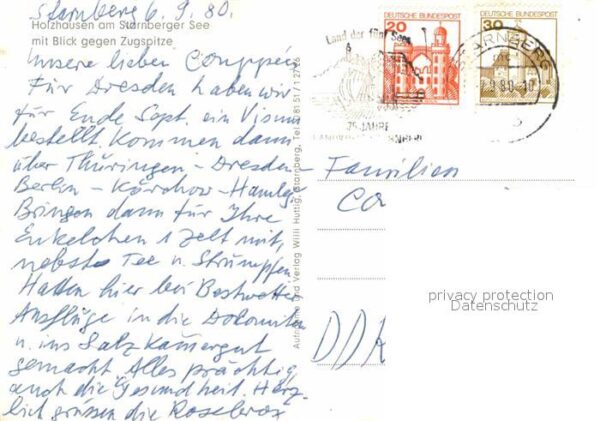 Starnberg 6.9.80.
Holzhausen am Starnberger See
mit Blick gegen Zugspitze
Unsere lieben
Für Dresden haben wir
für Ende Sept. ein Visum
bestellt. Kommen dann
über Thüringen – Dresden –
Berlin – –
Bringen dann für Ihre
Enkelchen 1 Zelt mit,
nebst Tee u. Strümpfen.
Hatten hier bei Bestwetter
Ausflüge in die Dolomiten
u. ins Salzkammergut
gemacht. Alles prächtig,
auch die Gesundheit. Herz-
lich grüssen die
Aufnahme und Verlag Willi Huttig, Starnberg, Tel. 0 81 51 /
DEUTSCHE BUNDESPOST
20
DEUTSCHE BUNDESPOST
30
Land der fünf Seen
75 JAHRE
LANDKREIS STARNBERG
STARNBERG
.9.80-10
Familien
Co
DDR
privacy protection
Datenschutz